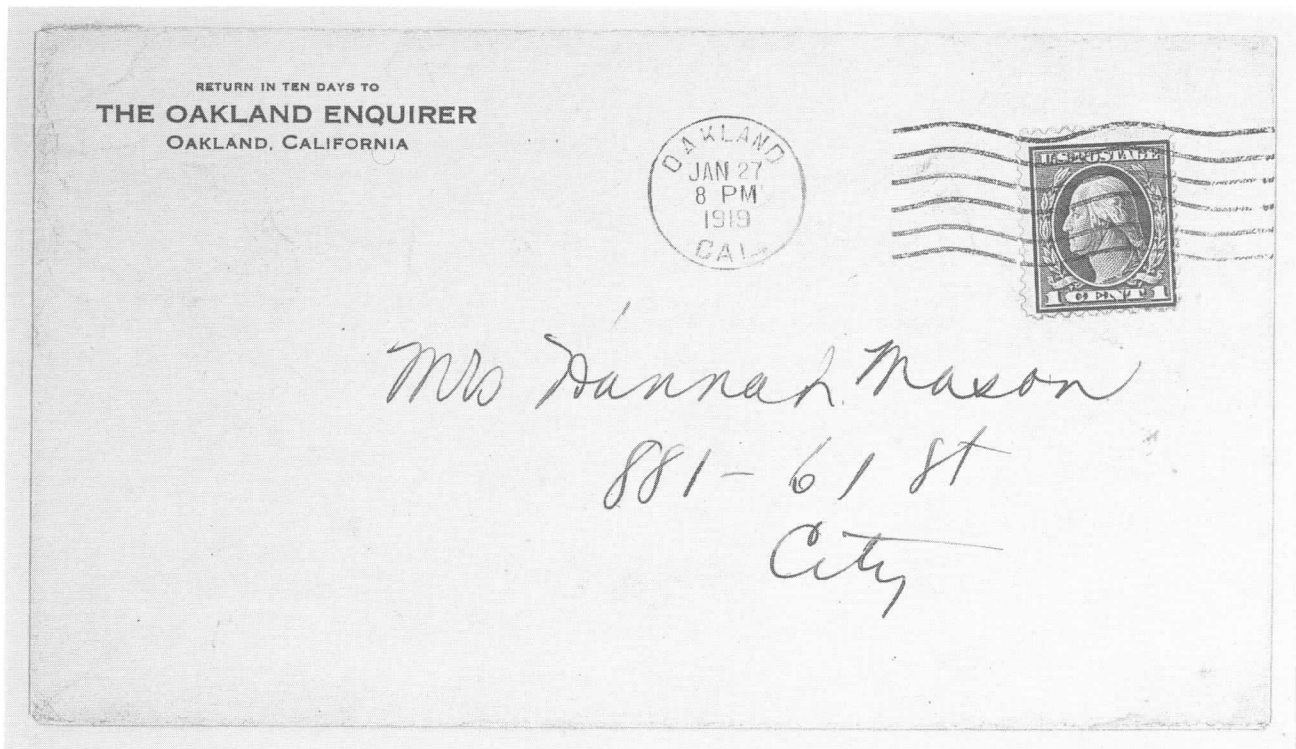 RETURN IN TEN DAYS TO
THE OAKLAND ENQUIRER
OAKLAND, CALIFORNIA
OAKLAND
JAN 27
8 PM
1919
CAL.
U.S. POSTAGE
1 CENT 1
Mrs Hannah Mason
881 - 61 St
City